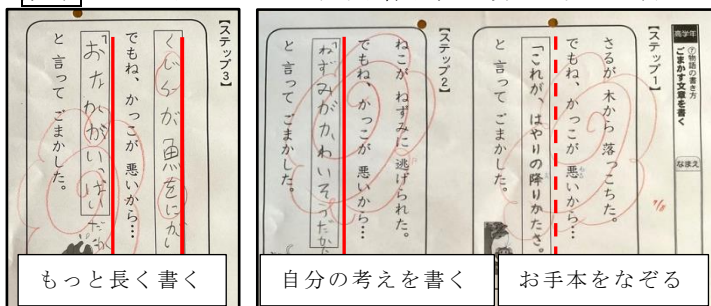 高学年
⑦物語の書き方
ごまかす文章を書く
なまえ
【ステップ1】
さるが 木から 落っこちた。
でもね、かっこが 悪いから…
「これが、はやりの降りかたさ。
と 言って ごまかした。
【ステップ2】
ねこが ねずみに 逃げられた。
でもね、かっこが 悪いから…
「ねずみがかわいそうだから
と 言って ごまかした。
【ステップ3】
くじらが 魚をに
でもね、かっこが 悪いから…
「おなかがいっぱいだから
と 言って ごまかした。
お手本をなぞる
自分の考えを書く
もっと長く書く